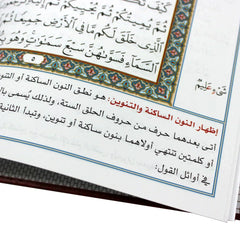 ثُمَّ يُمِيتُكُمْ ثُمَّ يُحْيِيكُمْ ثُمَّ
الَّذِي خَلَقَ لَكُم مَّا فِي الْأَرْضِ
السَّمَاءِ فَسَوَّاهُنَّ سَبْعَ سَمَاوَاتٍ وَهُوَ
٥
إظهار النون الساكنة والتنوين: هو نطق النون الساكنة أو التنو
أتى بعدهما حرف من حروف الحلق الستة، ولذلك يسمى بالإ
أو كلمتين تنتهي أولاهما بنون ساكنة أو تنوين، وتبدأ الثانية
في أوائل القول: